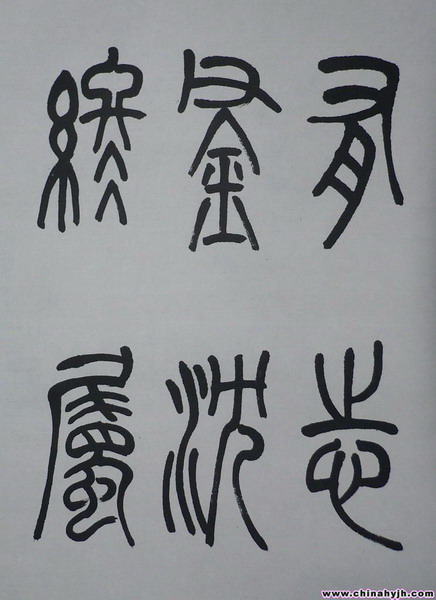 有志
釜沈
終屬
www.chinahyjh.com